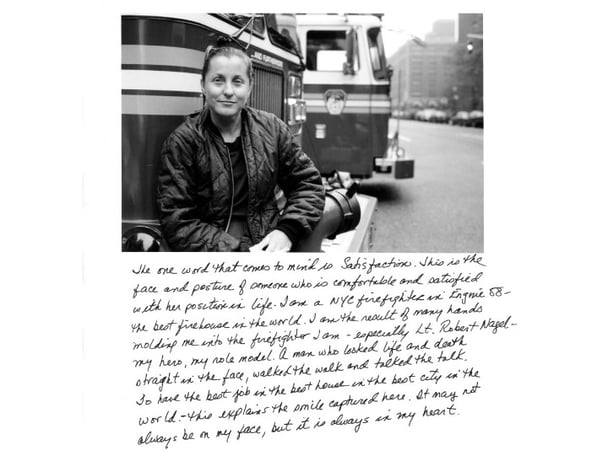 ...AND FURTHERMORE
The one word that comes to mind is Satisfaction. This is the
face and posture of someone who is comfortable and satisfied
with her position in life. I am a NYC firefighter in Engine 58-
the best firehouse in the world. I am the result of many hands
molding me into the firefighter I am - especially Lt. Robert Nagel-
my hero, my role model. A man who looked life and death
straight in the face, walked the walk and talked the talk.
To have the best job in the best house in the best city in the
world - this explains the smile captured here. It may not
always be on my face, but it is always in my heart.